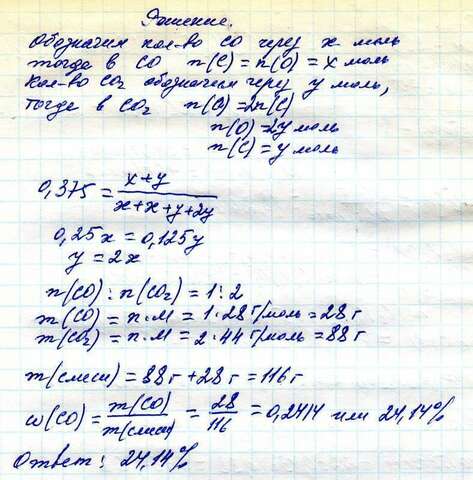 Решение.
Обозначим кол-во CO через x моль
тогда в CO n(C) = n(O) = x моль
Кол-во CO₂ обозначим через y моль,
Тогда в CO₂ n(O) = 2n(C)
n(O) = 2y моль
n(C) = y моль
0,375 = x+y / x+x+y+2y
0,25x = 0,125y
y = 2x
n(CO) : n(CO₂) = 1:2
m(CO) = n·M = 1·28 г/моль = 28 г
m(CO₂) = n·M = 2·44 г/моль = 88 г
m(смеси) = 88 г + 28 г = 116 г
ω(CO) = m(CO) / m(смеси) = 28 / 116 = 0,2414 или 24,14%
Ответ: 24,14%